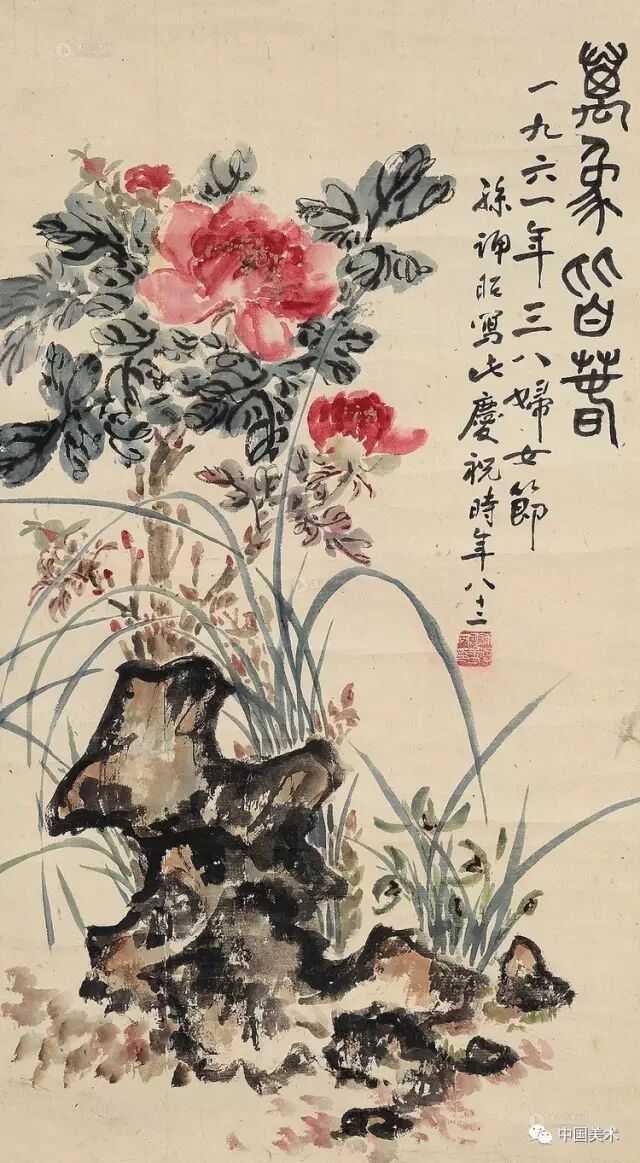 萬象皆春
一九六一年三八婦女節
孫誦昭寫此慶祝時年八十二
中国美术